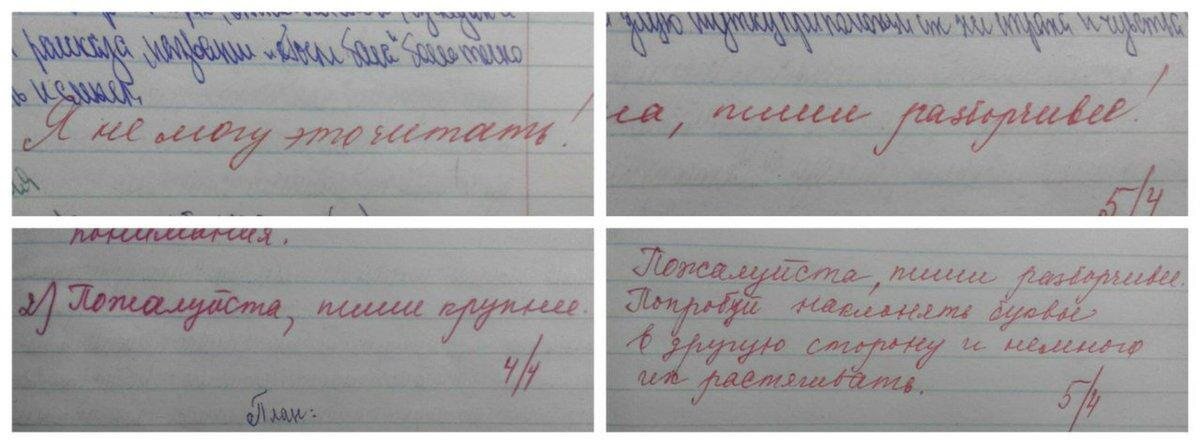 рассказа, название
Я не могу это читать!
злую шутку
и чувства
ла, пиши разборчивее!
5/4
понимания.
2) Пожалуйста, пиши крупнее.
4/4
План:
Пожалуйста, пиши разборчивее.
Попробуй наклонять буквы
в другую сторону и немного
их растягивать.
5/4